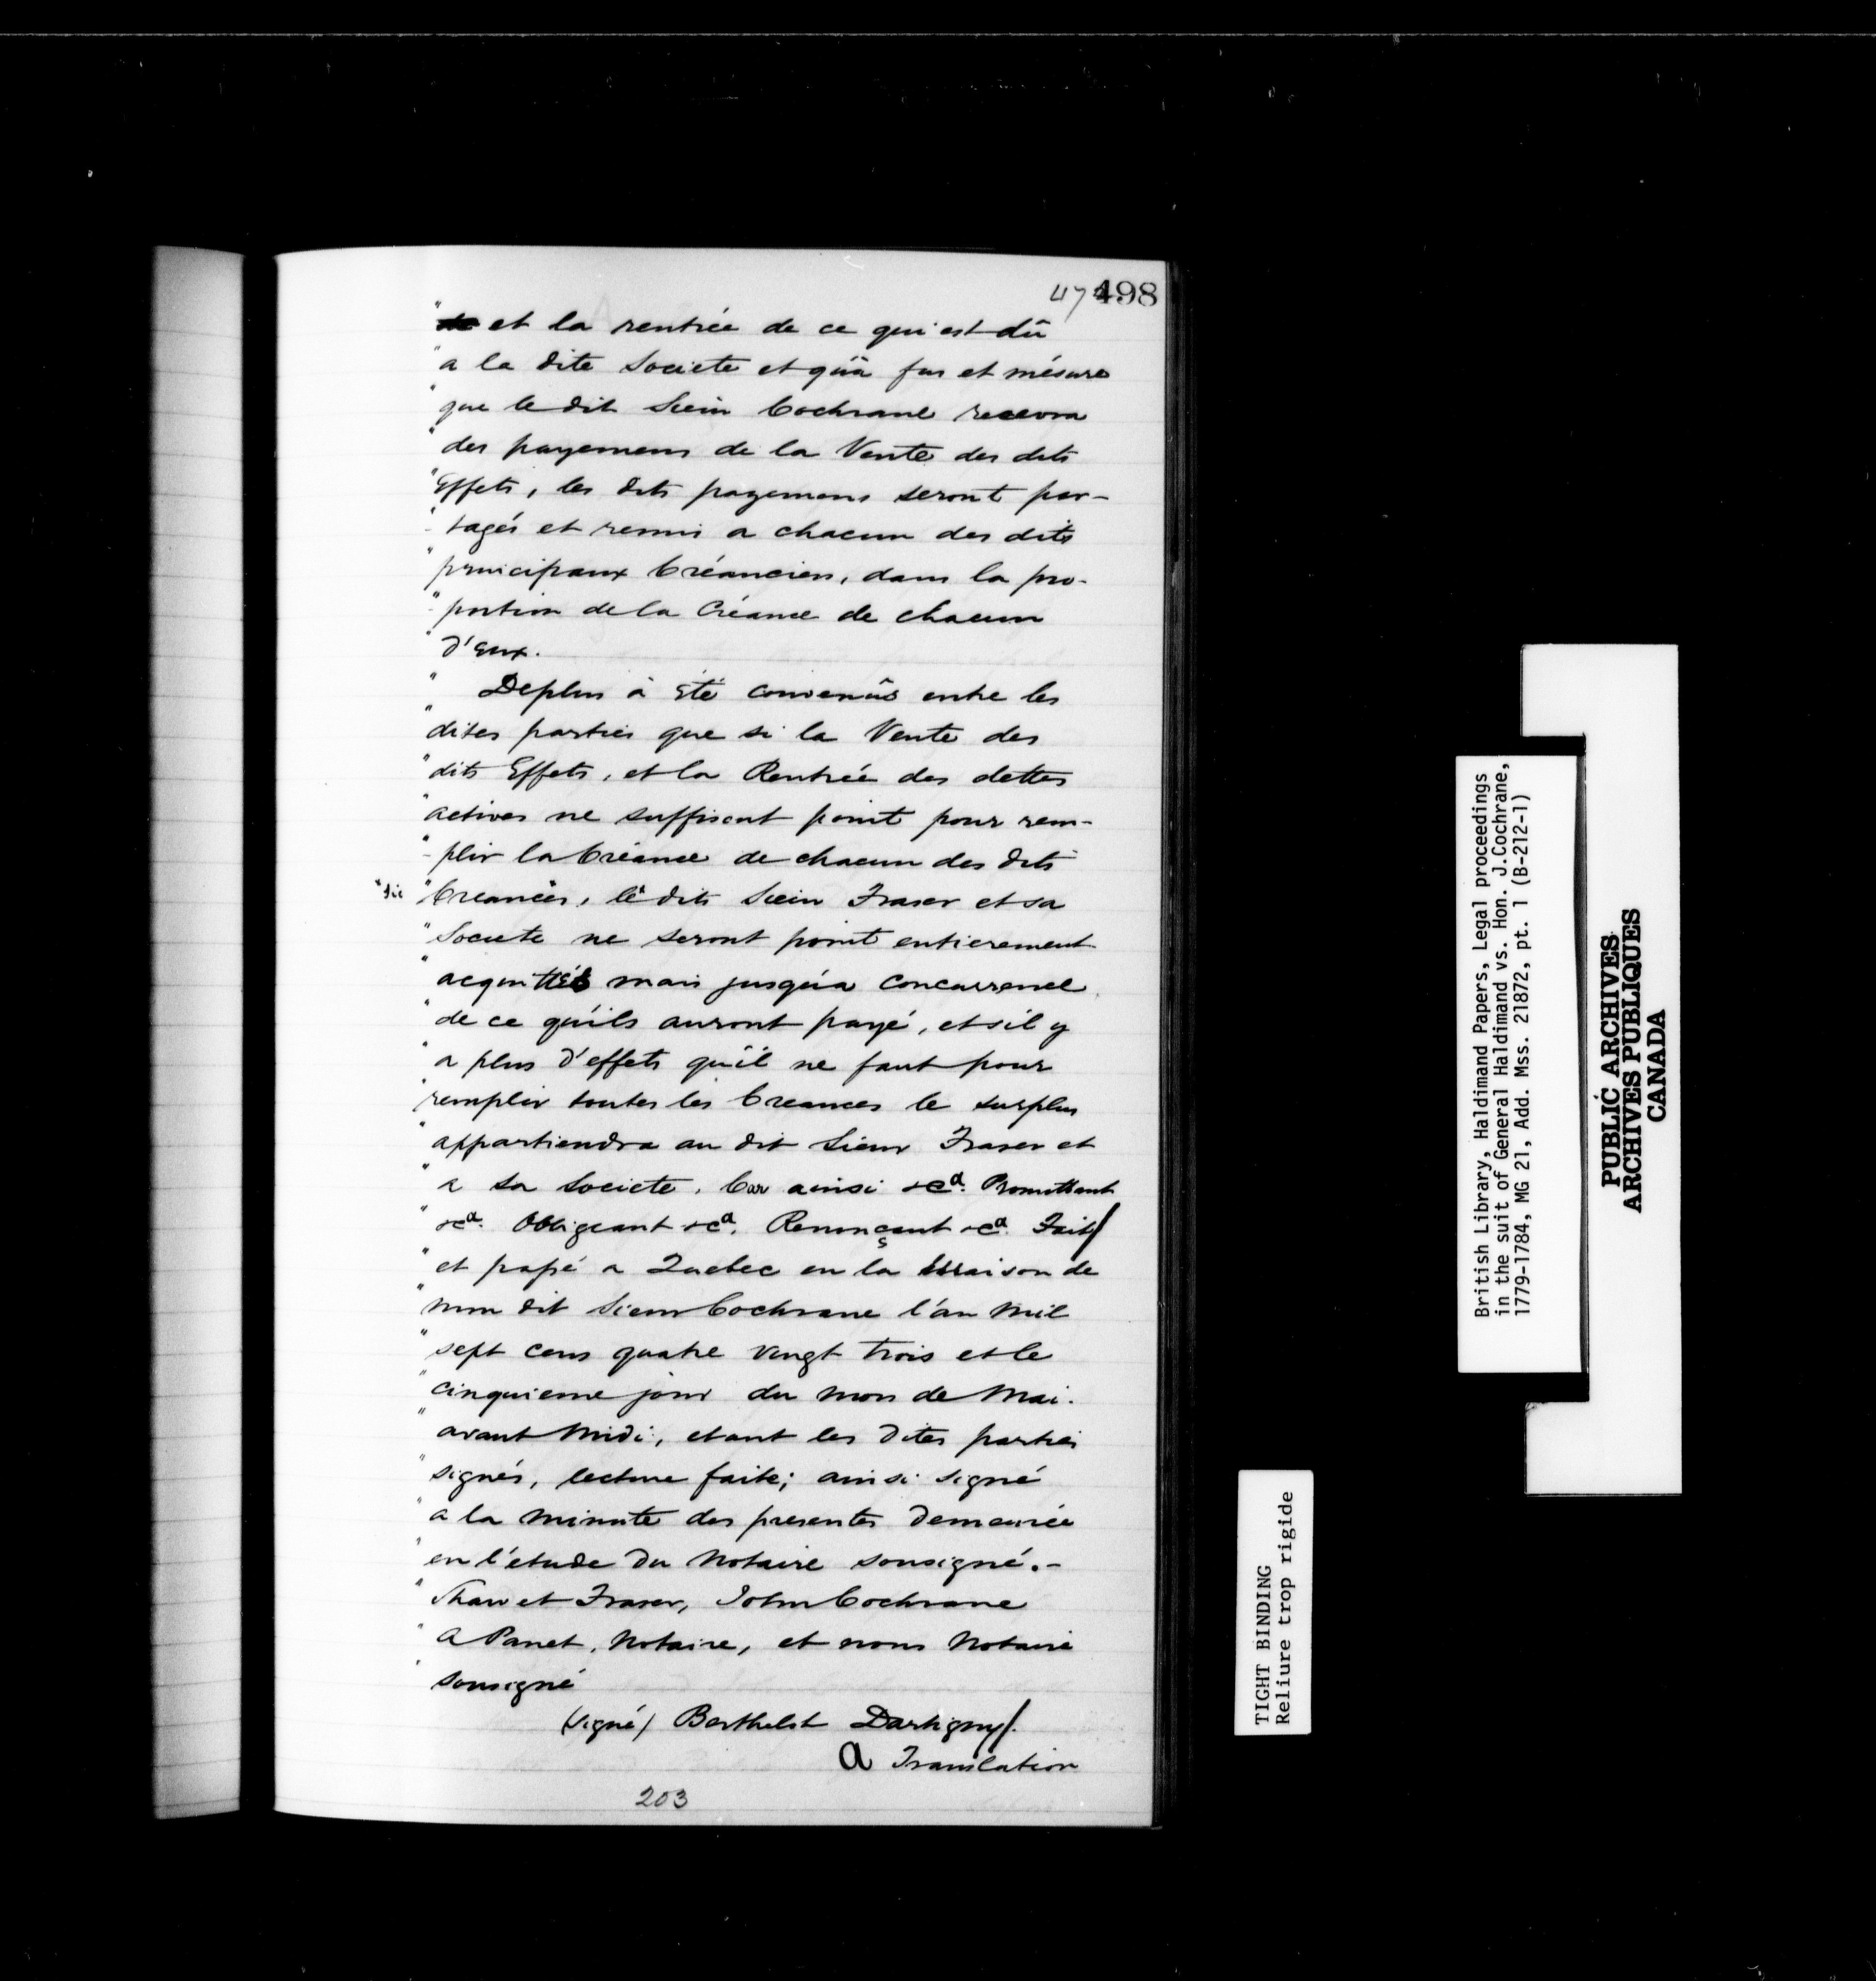 498
" et la rentrée de ce qui est dû
" a la dite Societe et qu'à fur et mésure
" que le dit Sieur Cochrane recevra
" des payemens de la Vente des dits
" Effets, les dits payemens seront par-
" tagés et remis a chacun des dits
" principaux Créanciers, dans la pro-
" portion de la Créance de chacun
" d'Eux.
" Deplus à été convenûs entre les
" dites parties que si la Vente des
" dits Effets, et la Rentrée des dettes
" actives ne suffisent point pour rem-
" plir la Créance de chacun des dits
"sic " Creanciers, le dit Sieur Fraser et sa
" Societe ne seront point entierement
" acquittés mais jusqu'a concurrence
" de ce qu'ils auront payé, et s'il y
" a plus d'effets qu'il ne faut pour
" remplir toutes les Creances le surplus
" appartiendra au dit Sieur Fraser et
" a sa Societe. Car ainsi &ca. Promettant
" &ca. Obligeant &ca. Renonçant &ca. Fait/
" et passé a Quebec en la Maison de
" mon dit Sieur Cochrane l'an Mil
" sept cens quatre vingt trois et le
" cinquieme jour du mois de Mai.
" avant Midi, etant les dites parties
" signés, lecture faite; ainsi signé
" a la Minute des presentes demeurée
" en l'étude du Notaire sousigné.-
" Shaw et Fraser, John Cochrane
" A Panet, Notaire, et nous Notaire
" Sousigné
(signé) Berthelot Dartigny/.
A Translation
203
British Library, Haldimand Papers, Legal proceedings
in the suit of General Haldimand vs. Hon. J.Cochrane,
1779-1784, MG 21, Add. Mss. 21872, pt. 1 (B-212-1)
PUBLIC ARCHIVES
ARCHIVES PUBLIQUES
CANADA
TIGHT BINDING
Reliure trop rigide